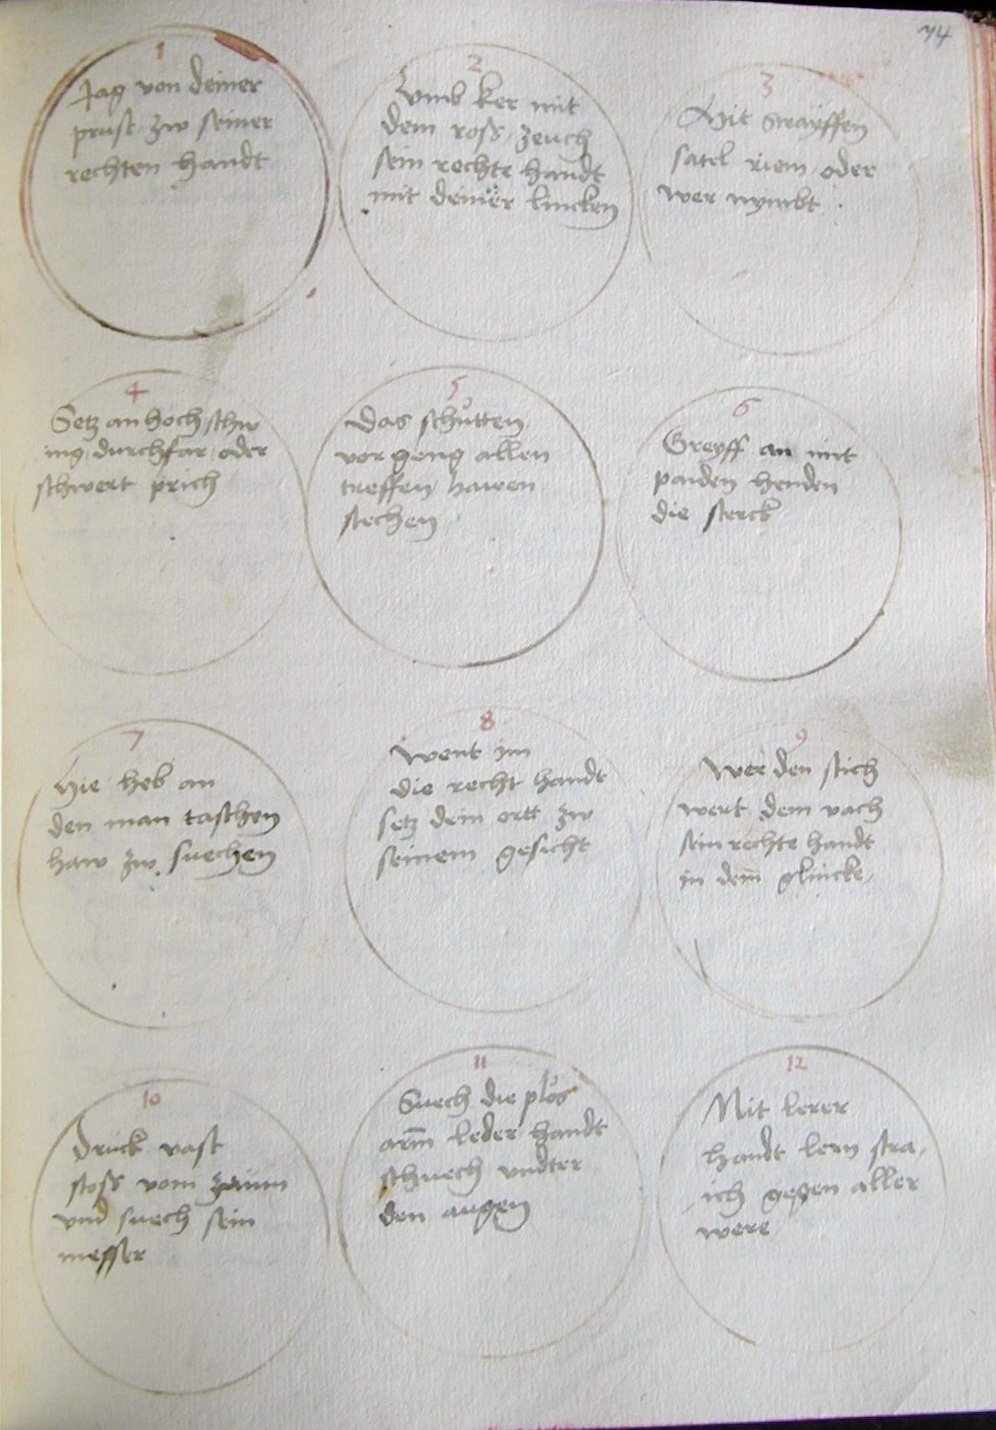 74
1
Jag von deiner
prust zw seiner
rechten handt
2
Vmb ker mit
dem ross zeuch
sein rechte handt
mit deiner lincken
3
Mit strayffen
satel riem oder
wer nymbt
4
Setz an hoch schw
ing durchfar oder
schwert prich
5
Das schütten
vor geng allen
treffen hawen
stechen
6
Greyff an mit
paiden henden
die sterck
7
Hie heb an
den man taschen
haw zw suechen
8
Went im
die recht handt
setz dein ortt zw
seinem gesicht
9
Wer den stich
wert dem vach
sein rechte handt
in dem̄ glincke
10
Druck vast
stoss vom zaum
vnd suech sein
messer
11
Suech die plos
arm̄ leder handt
schuech vndter
den augen
12
Mit lerer
handt lern stra,
ich gegen aller
were